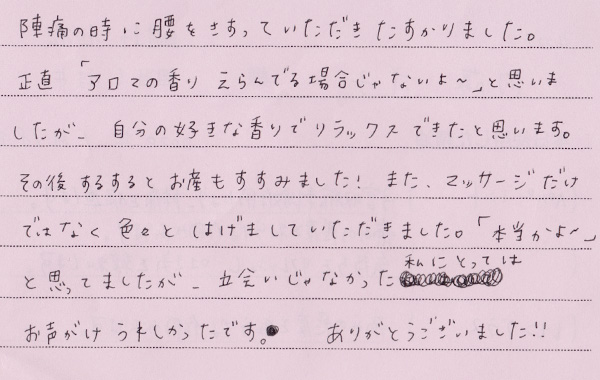 陣痛の時に腰をさすっていただきたすかりました。
正直「アロマの香り えらんでる場合じゃないよ〜」と思いま
したが、自分の好きな香りでリラックスできたと思います。
その後 するするとお産もすすみました! また、マッサージだけ
ではなく 色々と はげましていただきました。「本当かよ〜」
と思ってましたが、立会いじゃなかった私にとっては
お声がけ うれしかったです。 ありがとうございました!!